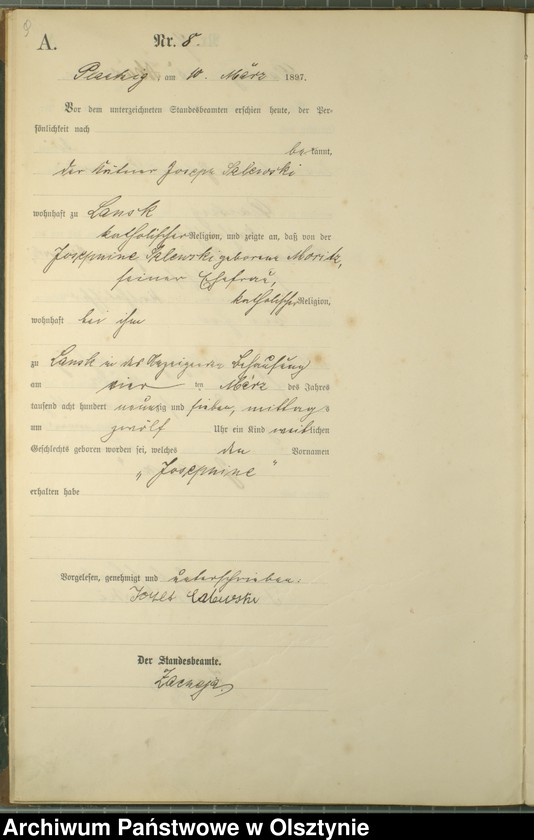 A. Nr. 8.
am 10. März 1897.
Vor dem unterzeichneten Standesbeamten erschien heute, der Per-
sönlichkeit nach
bekannt,
der Kätner Joseph
wohnhaft zu Lansk
katholischer Religion, und zeigte an, daß von der
Josephine geborene Moritz,
seiner Ehefrau,
katholischer Religion,
wohnhaft bei ihm
zu Lansk in des Anzeigenden Behausung
am vier ten März des Jahres
tausend acht hundert neunzig und sieben, mittags
um zwölf Uhr ein Kind weiblichen
Geschlechts geboren worden sei, welches den Vornamen
„Josephine"
erhalten habe
Vorgelesen, genehmigt und unterschrieben.
Der Standesbeamte.
Archiwum Państwowe w Olsztynie